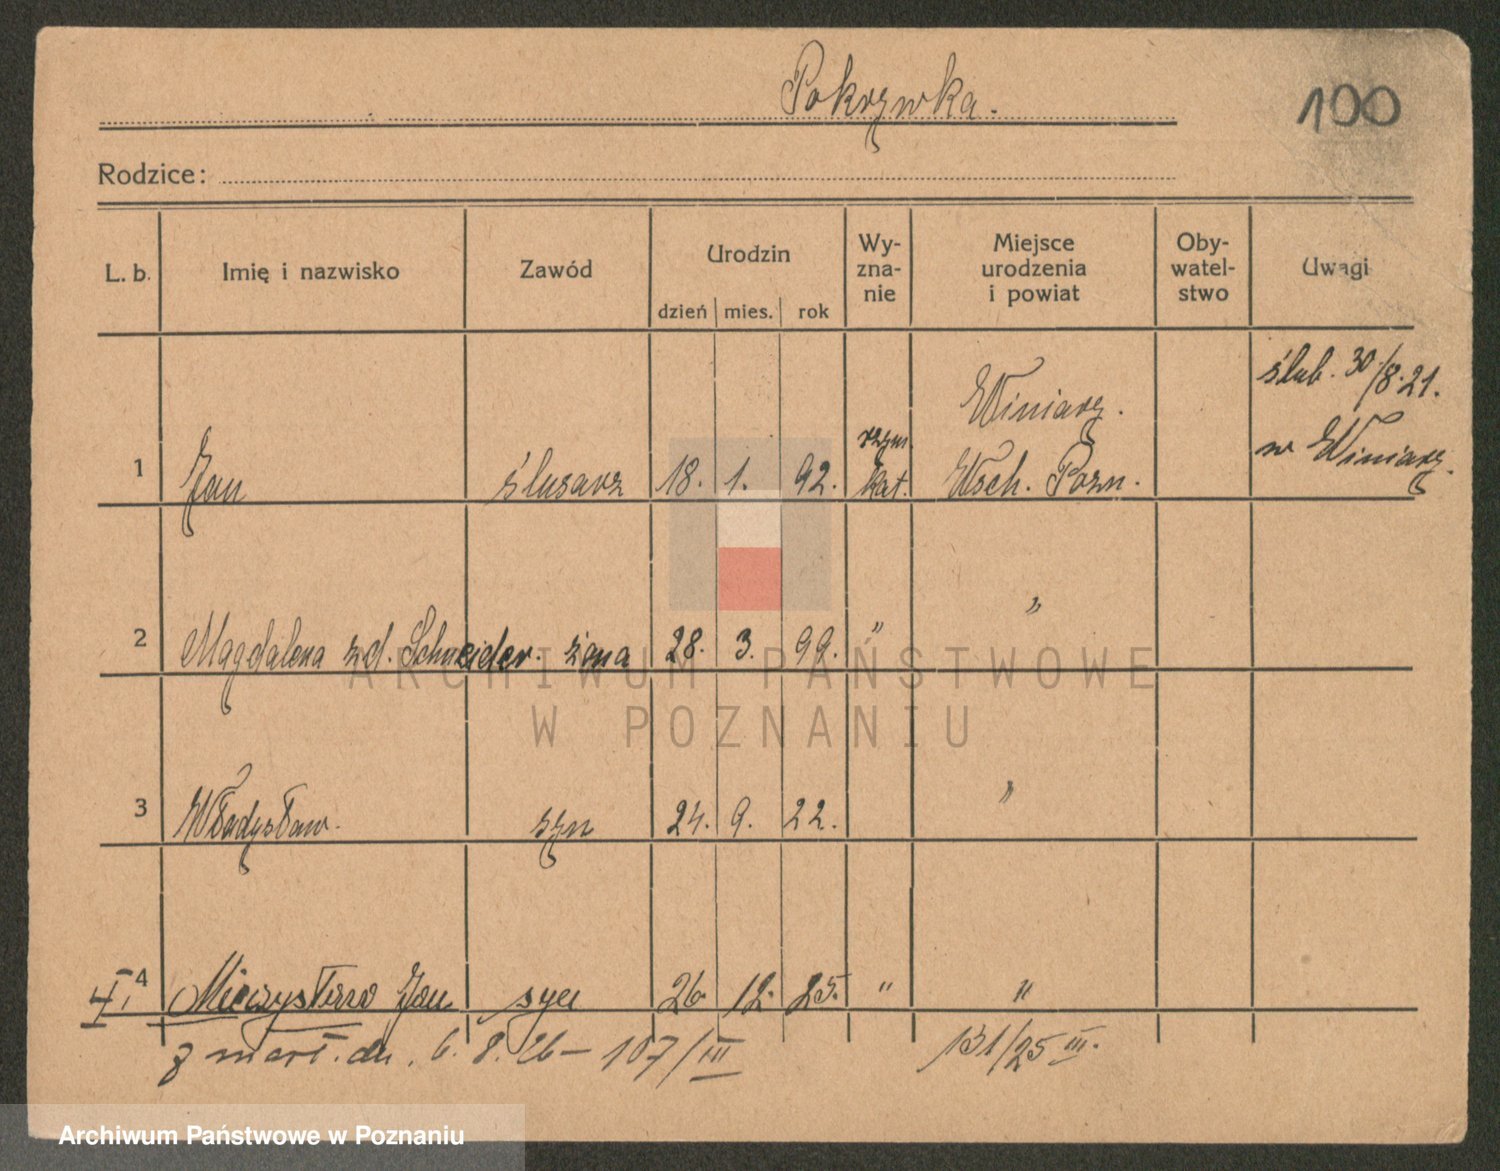 Pokrzywka.
100
Rodzice:
L. b. Imię i nazwisko Zawód Urodzin dzień mies. rok Wy-zna-nie Miejsce urodzenia i powiat Oby-watel-stwo Uwagi
ślub. 30/8.21.
w Winiary.
Winiary.
1 Jan ślusarz 18. 1. 92. rzym. kat. Wsch. Pozn.
2 Magdalena zd. Schneider. żona 28. 3. 99. " "
3 Władysław. syn 24. 9. 22. "
4 Mieczysław Jan syn 26. 12. 25. " "
zmarł. dn. 6. 8. 26 – 107/III 131/25 III.
ARCHIWUM PAŃSTWOWE
W POZNANIU
Archiwum Państwowe w Poznaniu